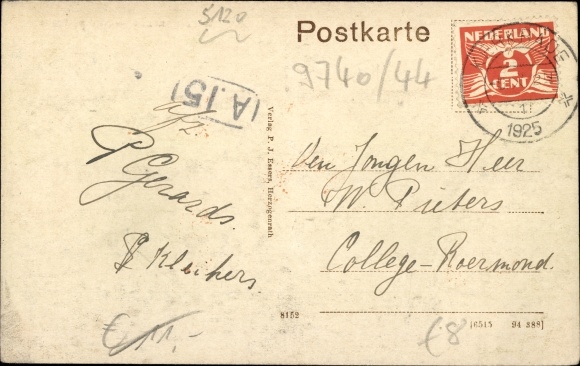 5120
Postkarte
NEDERLAND
2
CENT
1925
9740/44
A.15
afz
P Gerards.
Kleikers
Verlag P. J. Esser, Herzogenrath
Den Jongen Heer
W. Pieters
College-Roermond.
8152
[6515 94 388]
€ 11,-
€8